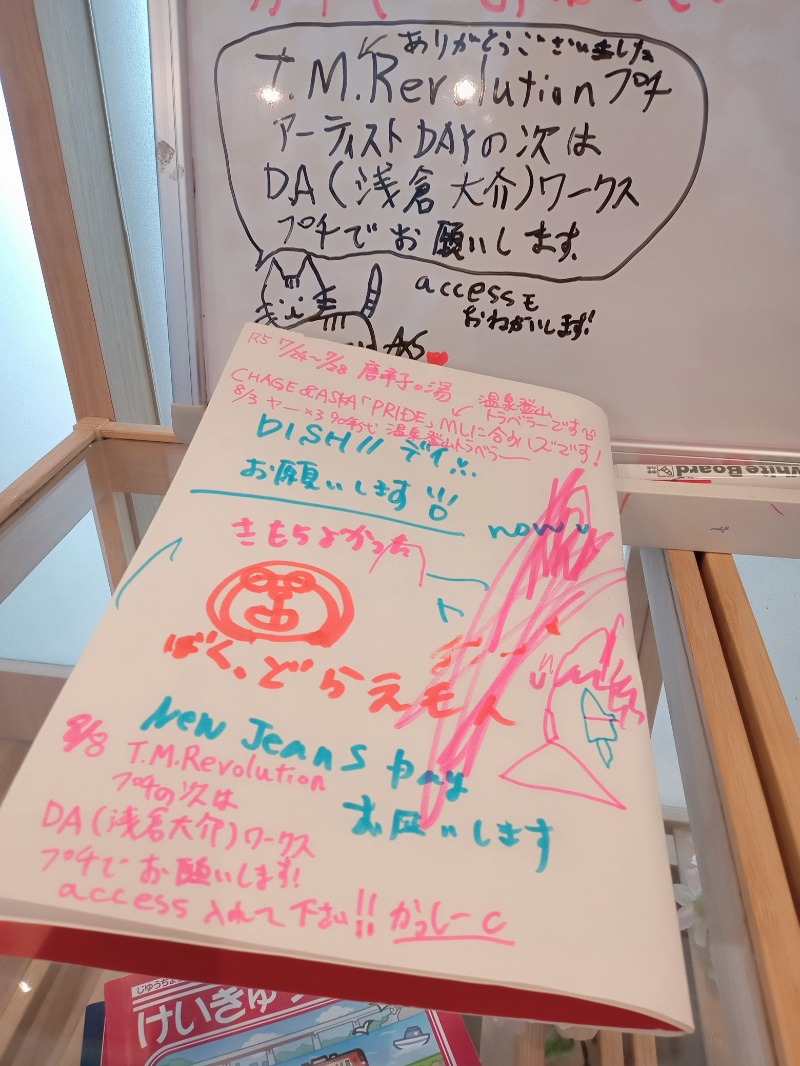 ありがとうございました
T.M.Revolutionプチ
アーティストDAYの次は
D.A(浅倉大介)ワークス
プチでお願いします。
accessも
おねがいします!
R5 7/24~7/28 唐辛子の湯
温泉登山
トラベラーです
CHAGE&ASKA「PRIDE」
8/3
温泉登山トラベラー
DISH//デイ
お願いします!!!
now
きもちよかった
ぼく、どらえもん
New Jeans Day
お願いします
8/8
T.M.Revolution
プチの次は
DA(浅倉大介)ワークス
プチでお願いします!
access入れて下さい!! かっしーc
WhiteBoard
じゆうちょう
けいきゅう